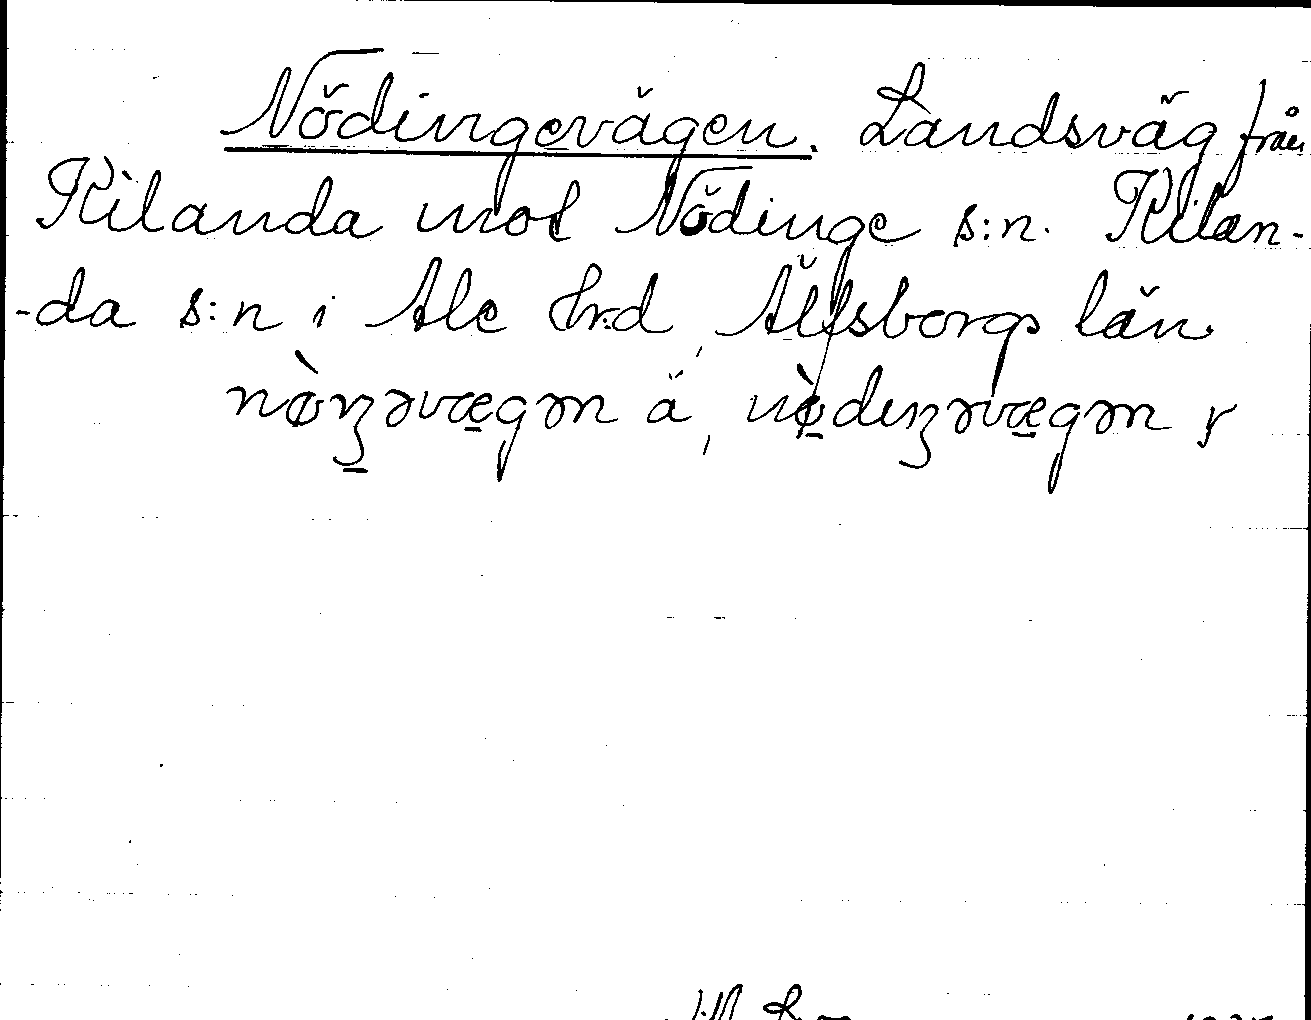 Nödingevägen. Landsväg från
Kilanda mot Nödinge s:n. Kilan-
-da s:n i Ale Hrd, Älfsborgs län
nø̀ŋəvægən ä, nø̀diŋəvægən y